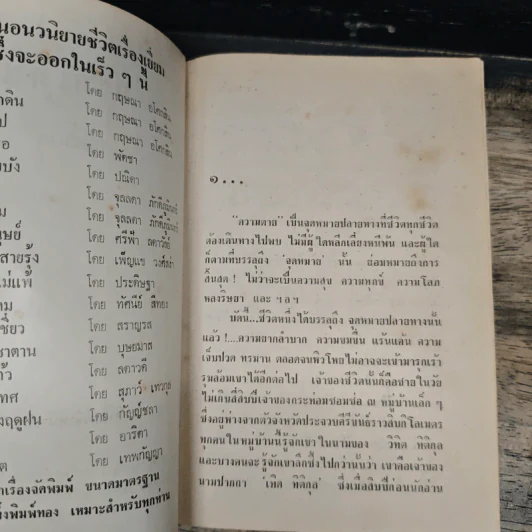 นอนวนิยายชีวิตเรื่องเยี่ยม
ซึ่งจะออกในเร็ว ๆ นี้
โดย กฤษณา อโศกสิน
โดย กฤษณา อโศกสิน
โดย กฤษณา อโศกสิน
โดย พัดชา
โดย ปณิตา
โดย จุลลดา ภักดีภูมินทร์
โดย จุลลดา ภักดีภูมินทร์
โดย ศรีฟ้า ลดาวัลย์
โดย เพ็ญแข วงศ์สง่า
โดย ประดิษฐา
โดย ทัศนีย์ สีทอง
โดย สราญรส
โดย บุษยมาส
โดย ลดาวดี
โดย สุภาว์ เทวกุล
โดย กัญญ์ชลา
โดย อาริตา
โดย เทพกัญญา
กเรื่องจัดพิมพ์ ขนาดมาตรฐาน
พิมพ์ทอง เหมาะสำหรับทุกท่าน
๑...
"ความตาย" เป็นจุดหมายปลายทางที่ชีวิตทุกชีวิต
ต้องเดินทางไปพบ ไม่มีผู้ใดหลีกเลี่ยงหนีพ้น และผู้ใด
ก็ตามที่บรรลุถึง 'จุดหมาย' นั้น ย่อมหมายถึงการ
สิ้นสุด ! ไม่ว่าจะเป็นความสุข ความทุกข์ ความโลภ
หลงริษยา และ ฯลฯ
บัดนี้...ชีวิตหนึ่งได้บรรลุถึง จุดหมายปลายทางนั้น
แล้ว !...ความยากลำบาก ความขมขื่น แร้นแค้น ความ
เจ็บปวด ทรมาน ตลอดจนพิษโพยไม่อาจจะเข้ามารุกเร้า
รุมล้อมเขาได้อีกต่อไป เจ้าของชีวิตนั้นก็คือชายในวัย
ไม่เกินสี่สิบปีเจ้าของกระท่อมซอมซ่อ ณ หมู่บ้านเล็ก ๆ
ซึ่งอยู่ห่างจากตัวจังหวัดประจวบคีรีขันธ์ราวสิบกิโลเมตร
ทุกคนในหมู่บ้านนี้รู้จักเขาในนามของ วิทิต ทิติกุล
และบางคนจะรู้จักเขาลึกซึ้งไปกว่านั้นว่า เขาคือเจ้าของ
นามปากกา 'เทิด ทิติกุล' ซึ่งเมื่อสิบปีก่อนนักอ่าน